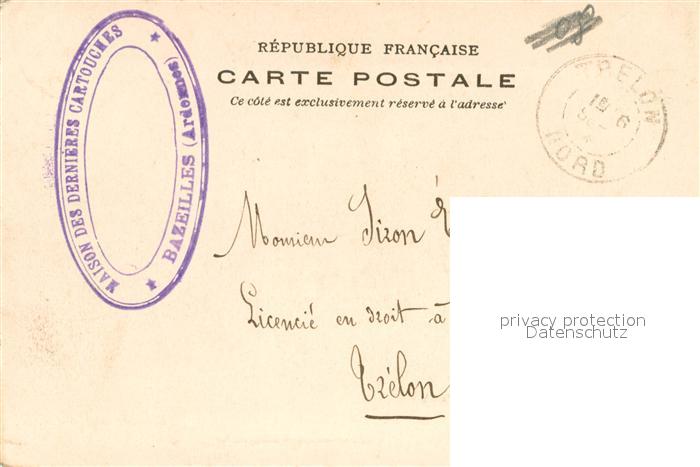 MAISON DES DERNIÈRES CARTOUCHES
★ BAZEILLES (Ardennes) ★
RÉPUBLIQUE FRANÇAISE
CARTE POSTALE
Ce côté est exclusivement réservé à l'adresse
TRELON
NORD
Monsieur
Licencié en droit à
Trélon
privacy protection
Datenschutz